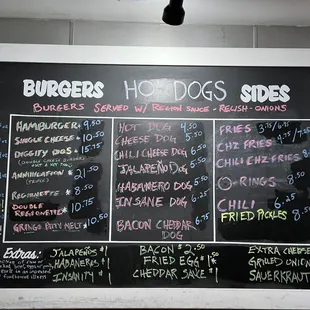 BURGERS HOT DOGS SIDES
BURGERS SERVED W/ REGION SAUCE - RELISH - ONIONS
HAMBURGER 9.50
SINGLE CHEESE 10.50
DIGGITY DOGS 15.75
ANNIHILATION 21.50
REGIONETTE 8.50
DOUBLE
REGIONETTE 10.75
PATTY MELT 10.50
HOT DOG 4.50
CHEESE DOG 5.50
CHILI CHEESE DOG
JALAPEÑO DOG 5.50
HABANERO DOG
INSANE DOG 6.50
BACON CHEDDAR 6.75
DOG
FRIES
CHZ FRIES
CHILI CHZ FRIES 8.50
O-RINGS 8.50
CHILI
FRIED PICKLES 8.50
Extras:
JALAPEÑOS $1
HABANEROS $1
INSANITY $1
BACON $2.50
FRIED EGG $1*
CHEDDAR SAUCE $1
EXTRA CHEESE
GRILLED ONION
SAUERKRAUT